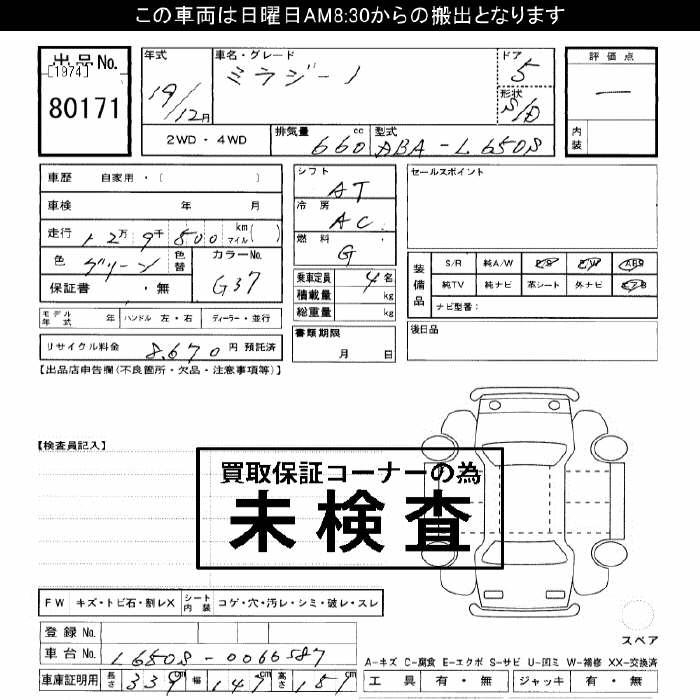 この車両は日曜日AM8:30からの搬出となります
出品No.
[1974]
80171
年式
19/12月
車名・グレード
ミラジーノ
ドア
5
形状
S/D
評価点
ー
内装
2WD・4WD
排気量
660 cc
型式
ABA-L650S
車歴 自家用・( )
車検 年 月
走行 12万9千800 km マイル( )
色 グリーン 色替
カラーNo.
G37
保証書 ・無
モデル年式 年
ハンドル 左・右
ディーラー・並行
リサイクル料金 8,670円 預託済
シフト
AT
冷房
AC
燃料
G
乗車定員 4名
積載量 kg
総重量 kg
書類期限
月 日
セールスポイント
装備品
S/R 純A/W P/S P/W ABS
純TV 純ナビ 革シート 外ナビ エアB
ナビ型番:
後日品
【出品店申告欄(不良箇所・欠品・注意事項等)】
【検査員記入】
買取保証コーナーの為
未検査
FW キズ・トビ石・割レX
シート内装 コゲ・穴・汚レ・シミ・破レ・スレ
登録No.
車台No. L650S-0066587
車庫証明用 長さ 339cm 幅 147cm 高さ 151cm
スペア
A-キズ C-腐食 E-エクボ S-サビ U-凹ミ W-補修 XX-交換済
工具 有・無 ジャッキ 有・無